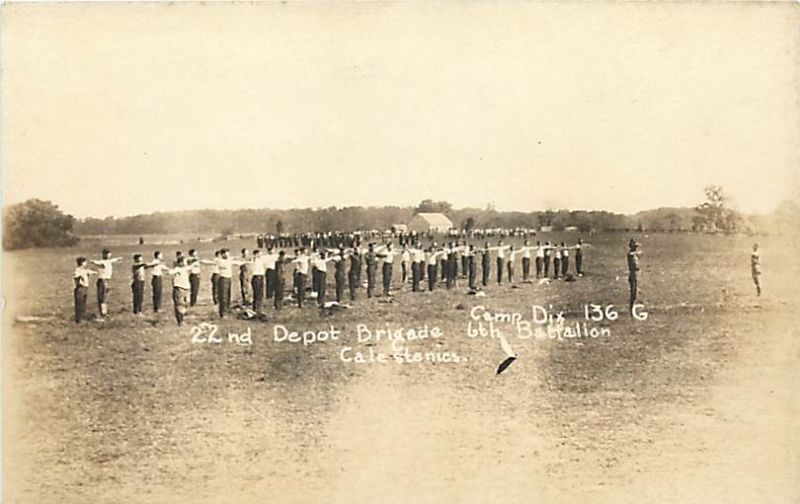 Camp Dix 136 G
22nd Depot Brigade 6th Battalion
Calestenics.